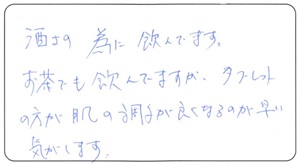 酒さの 為に 飲んでます。
お茶でも飲んでますが、タブレット
の方が肌の調子が良くなるのが早い
気がします。